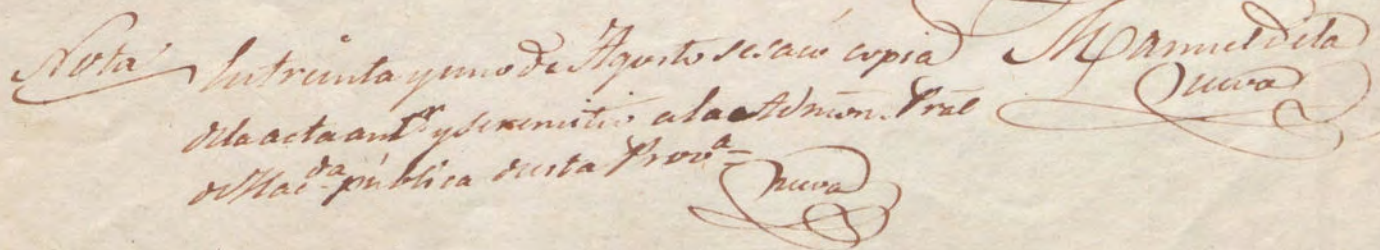 Nota En treinta y uno de Agosto se sacó copia
de la acta antr. y se remitió a la Admon. Pral
de Hacda. pública de esta Prova.=
Manuel de la
Cueva
Cueva